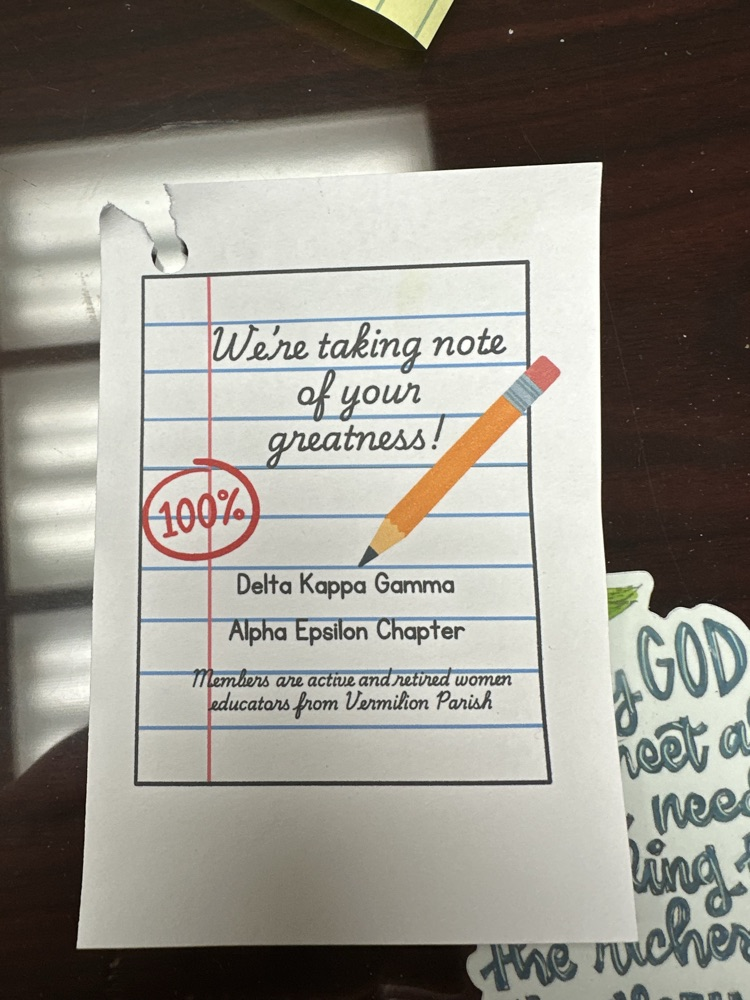 We're taking note
of your
greatness!
100%
Delta Kappa Gamma
Alpha Epsilon Chapter
Members are active and retired women
educators from Vermilion Parish
GOD
need
the riches